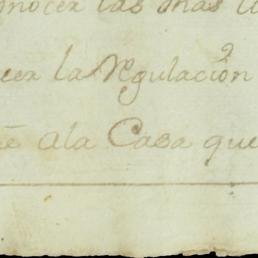 onocer las mas
cer la Regulación
ala Casa que